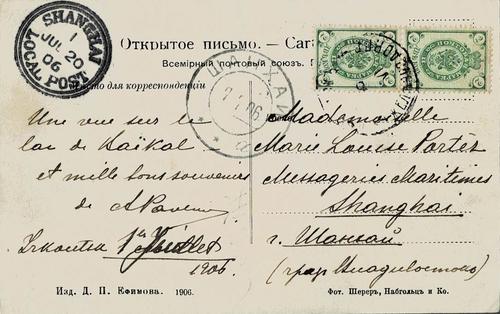 SHANGHAI
1
JUL 20
06
LOCAL POST
Открытое письмо. — Car
Всемірный почтовый союзъ.
Мѣсто для корреспонденціи
ШАНХАЙ
06
Une vue sur le
lac de Baïkal
et mille bons souvenirs
de
Irkoutsk 1er Juillet
1906.
Mademoiselle
Marie Louise Portes
Messageries Maritimes
Shanghai
г. Шанхай
(чрез Владивосток)
Изд. Д. П. Ефимова. 1906.
Фот. Шереръ, Набгольцъ и Ко.